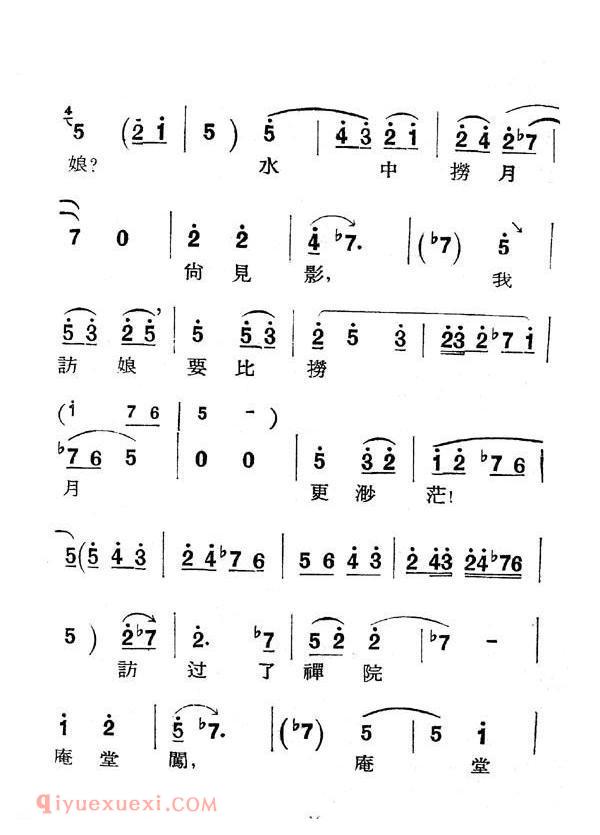 4 5 (2 1 | 5) 5 | 4 3 2 1 | 2 4 2 ♭7 |
娘? 水 中 撈 月
7 0 | 2 2 | 4 ♭7. | (♭7) 5 |
尙 見 影, 我
5 3 2 5 ’ | 5 5 3 | 2 5 3 | 2 3 2 ♭7 1 |
訪 娘 要 比 撈
(1 7 6 | 5 - )
♭7 6 5 | 0 0 | 5 3 2 | 1 2 ♭7 6 |
月 更 渺 茫!
5 (5 4 3 | 2 4 ♭7 6 | 5 6 4 3 | 2 4 3 2 4 ♭7 6 |
5 ) 2 ♭7 | 2. ♭7 | 5 2 2 | ♭7 - |
訪 过 了 禪 院
1 2 | 5 ♭7. | (♭7) 5 | 5 1 |
庵 堂 闖, 庵 堂
qiyuexuexi.com